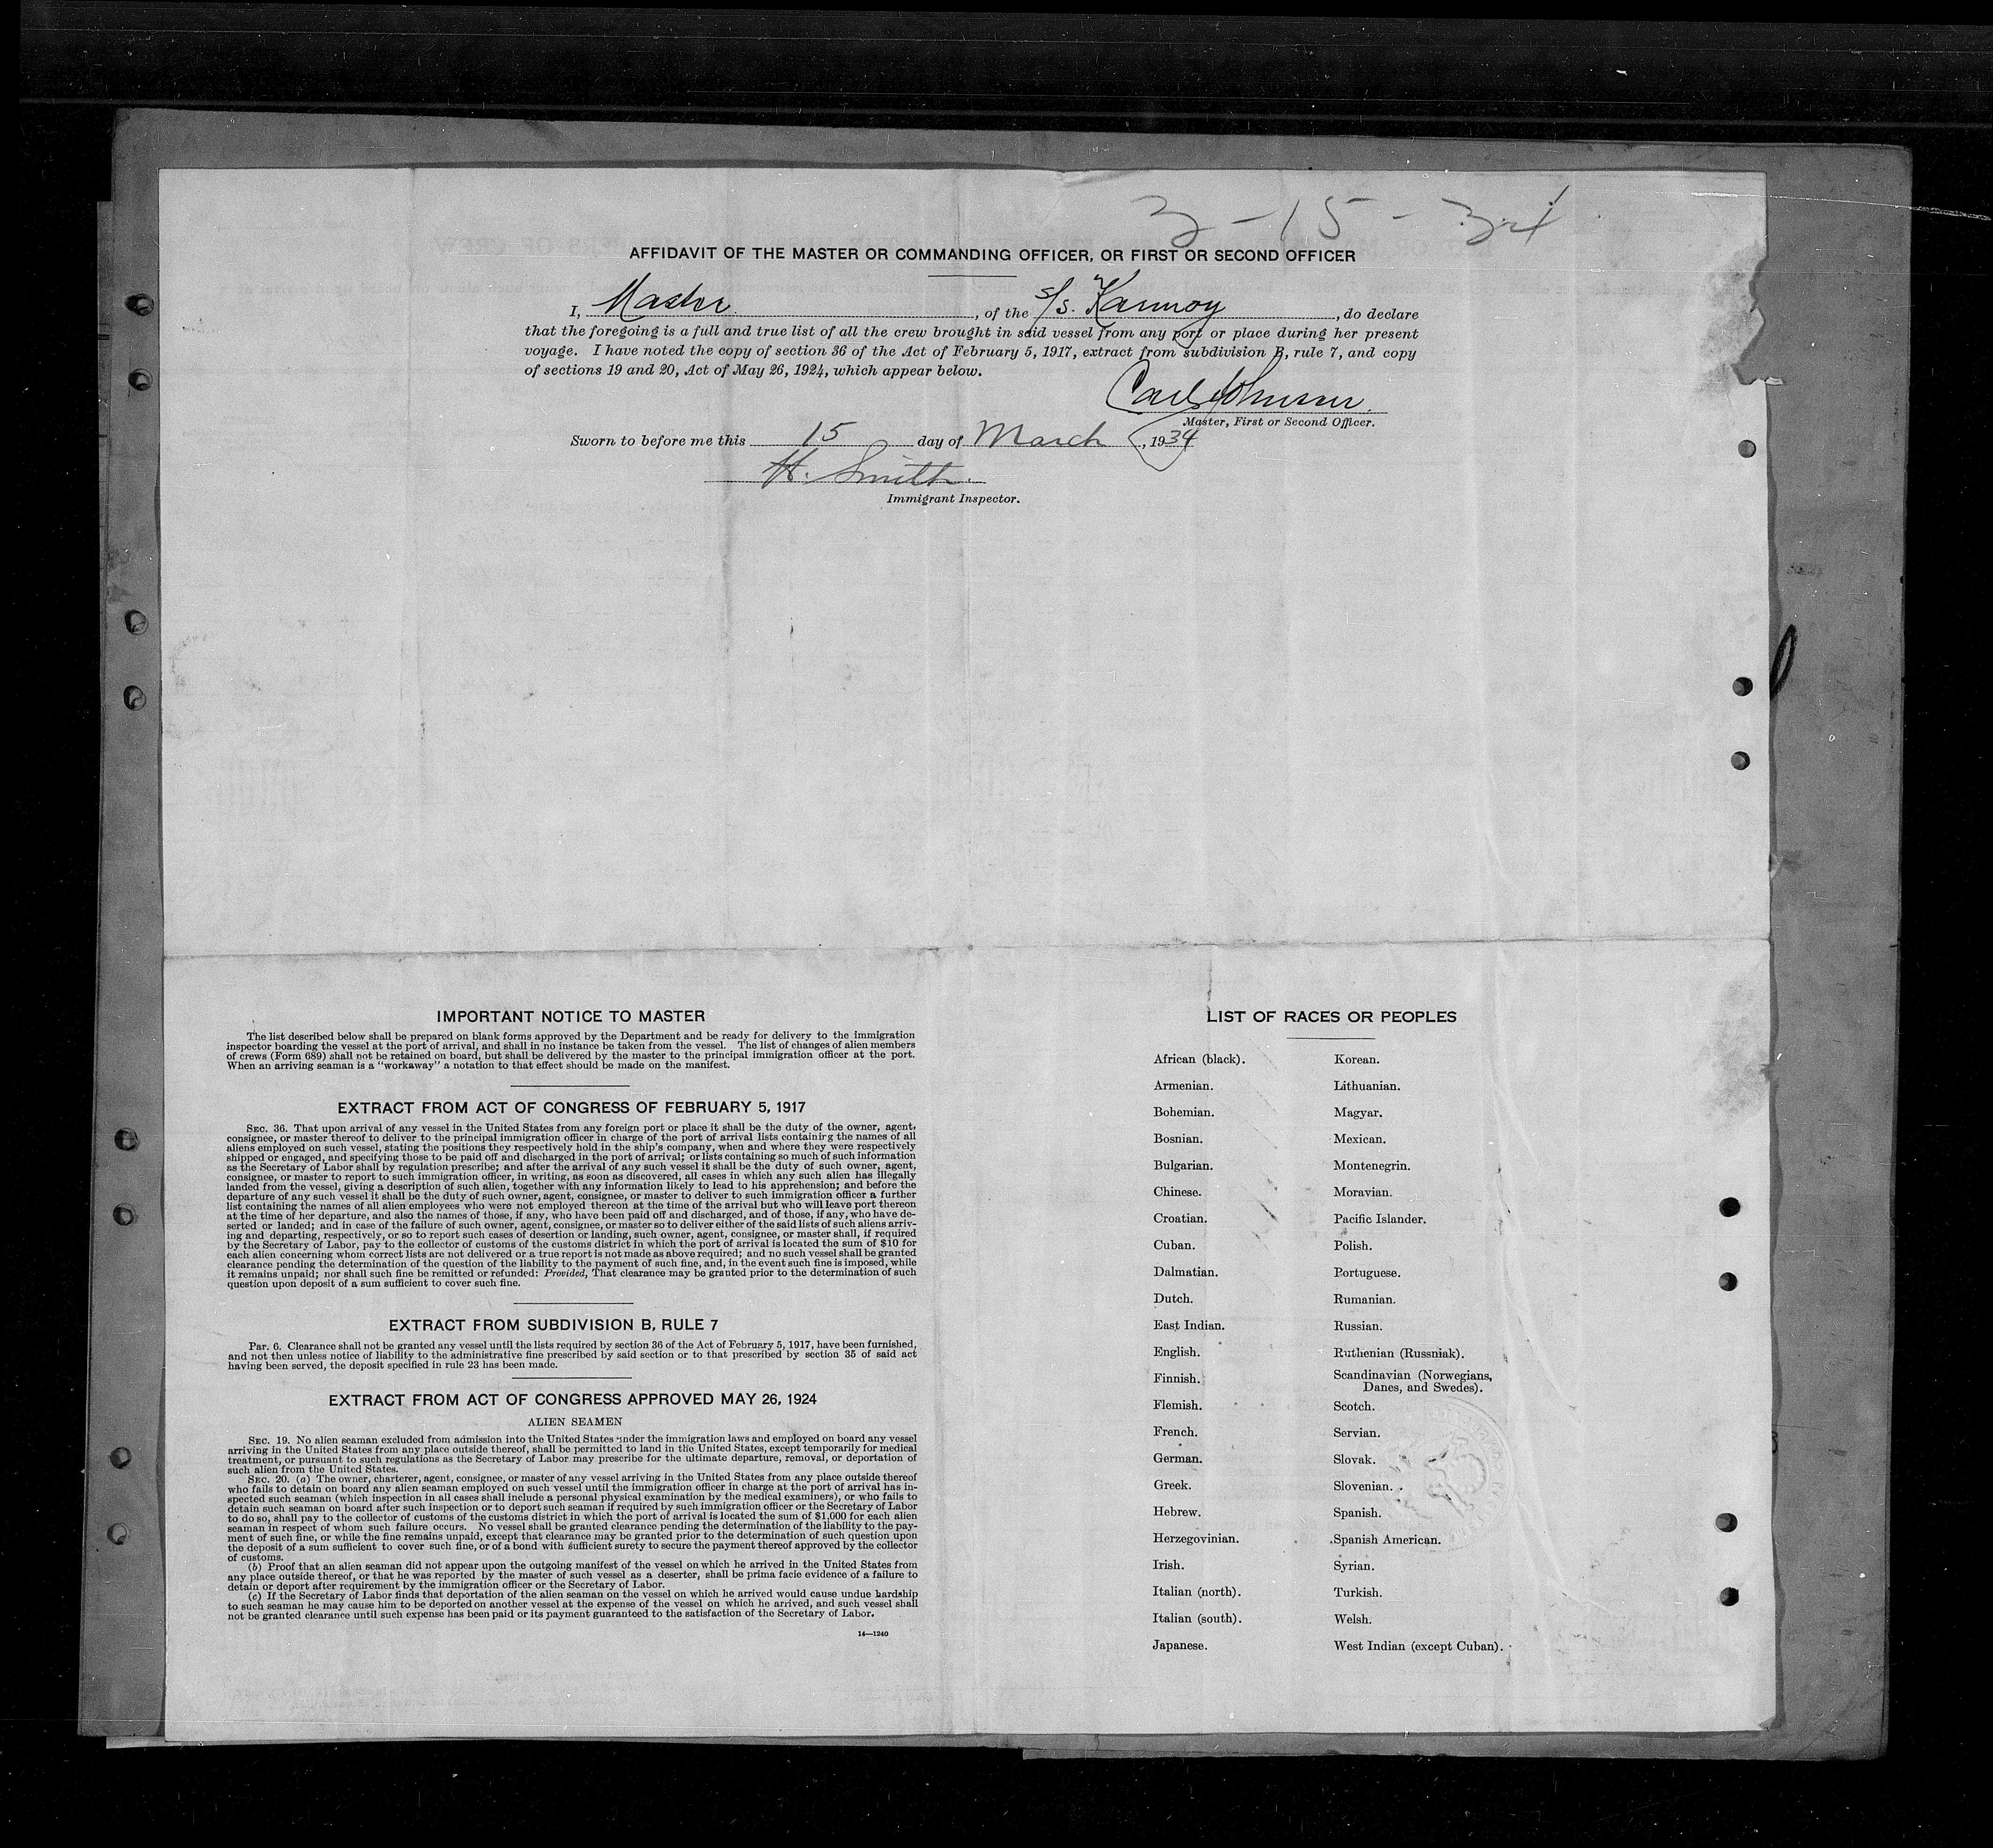 3-15-34
AFFIDAVIT OF THE MASTER OR COMMANDING OFFICER, OR FIRST OR SECOND OFFICER
I, Master, of the S/s. Karmoy, do declare
that the foregoing is a full and true list of all the crew brought in said vessel from any port or place during her present
voyage. I have noted the copy of section 36 of the Act of February 5, 1917, extract from subdivision B, rule 7, and copy
of sections 19 and 20, Act of May 26, 1924, which appear below.
Carl Johnsen
Master, First or Second Officer.
Sworn to before me this 15 day of March, 1934
H. Smith.
Immigrant Inspector.
IMPORTANT NOTICE TO MASTER
The list described below shall be prepared on blank forms approved by the Department and be ready for delivery to the immigration
inspector boarding the vessel at the port of arrival, and shall in no instance be taken from the vessel. The list of changes of alien members
of crews (Form 689) shall not be retained on board, but shall be delivered by the master to the principal immigration officer at the port.
When an arriving seaman is a "workaway" a notation to that effect should be made on the manifest.
EXTRACT FROM ACT OF CONGRESS OF FEBRUARY 5, 1917
SEC. 36. That upon arrival of any vessel in the United States from any foreign port or place it shall be the duty of the owner, agent,
consignee, or master thereof to deliver to the principal immigration officer in charge of the port of arrival lists containing the names of all
aliens employed on such vessel, stating the positions they respectively hold in the ship's company, when and where they were respectively
shipped or engaged, and specifying those to be paid off and discharged in the port of arrival; or lists containing so much of such information
as the Secretary of Labor shall by regulation prescribe; and after the arrival of any such vessel it shall be the duty of such owner, agent,
consignee, or master to report to such immigration officer, in writing, as soon as discovered, all cases in which any such alien has illegally
landed from the vessel, giving a description of such alien, together with any information likely to lead to his apprehension; and before the
departure of any such vessel it shall be the duty of such owner, agent, consignee, or master to deliver to such immigration officer a further
list containing the names of all alien employees who were not employed thereon at the time of the arrival but who will leave port thereon
at the time of her departure, and also the names of those, if any, who have been paid off and discharged, and of those, if any, who have de-
serted or landed; and in case of the failure of such owner, agent, consignee, or master so to deliver either of the said lists of such aliens arriv-
ing and departing, respectively, or so to report such cases of desertion or landing, such owner, agent, consignee, or master shall, if required
by the Secretary of Labor, pay to the collector of customs of the customs district in which the port of arrival is located the sum of $10 for
each alien concerning whom correct lists are not delivered or a true report is not made as above required; and no such vessel shall be granted
clearance pending the determination of the question of the liability to the payment of such fine, and, in the event such fine is imposed, while
it remains unpaid; nor shall such fine be remitted or refunded: Provided, That clearance may be granted prior to the determination of such
question upon deposit of a sum sufficient to cover such fine.
EXTRACT FROM SUBDIVISION B, RULE 7
Par. 6. Clearance shall not be granted any vessel until the lists required by section 36 of the Act of February 5, 1917, have been furnished,
and not then unless notice of liability to the administrative fine prescribed by said section or to that prescribed by section 35 of said act
having been served, the deposit specified in rule 23 has been made.
EXTRACT FROM ACT OF CONGRESS APPROVED MAY 26, 1924
ALIEN SEAMEN
SEC. 19. No alien seaman excluded from admission into the United States under the immigration laws and employed on board any vessel
arriving in the United States from any place outside thereof, shall be permitted to land in the United States, except temporarily for medical
treatment, or pursuant to such regulations as the Secretary of Labor may prescribe for the ultimate departure, removal, or deportation of
such alien from the United States.
SEC. 20. (a) The owner, charterer, agent, consignee, or master of any vessel arriving in the United States from any place outside thereof
who fails to detain on board any alien seaman employed on such vessel until the immigration officer in charge at the port of arrival has in-
spected such seaman (which inspection in all cases shall include a personal physical examination by the medical examiners), or who fails to
detain such seaman on board after such inspection or to deport such seaman if required by such immigration officer or the Secretary of Labor
to do so, shall pay to the collector of customs of the customs district in which the port of arrival is located the sum of $1,000 for each alien
seaman in respect of whom such failure occurs. No vessel shall be granted clearance pending the determination of the liability to the pay-
ment of such fine, or while the fine remains unpaid, except that clearance may be granted prior to the determination of such question upon
the deposit of a sum sufficient to cover such fine, or of a bond with sufficient surety to secure the payment thereof approved by the collector
of customs.
(b) Proof that an alien seaman did not appear upon the outgoing manifest of the vessel on which he arrived in the United States from
any place outside thereof, or that he was reported by the master of such vessel as a deserter, shall be prima facie evidence of a failure to
detain or deport after requirement by the immigration officer or the Secretary of Labor.
(c) If the Secretary of Labor finds that deportation of the alien seaman on the vessel on which he arrived would cause undue hardship
to such seaman he may cause him to be deported on another vessel at the expense of the vessel on which he arrived, and such vessel shall
not be granted clearance until such expense has been paid or its payment guaranteed to the satisfaction of the Secretary of Labor.
14—1240
LIST OF RACES OR PEOPLES
African (black).
Armenian.
Bohemian.
Bosnian.
Bulgarian.
Chinese.
Croatian.
Cuban.
Dalmatian.
Dutch.
East Indian.
English.
Finnish.
Flemish.
French.
German.
Greek.
Hebrew.
Herzegovinian.
Irish.
Italian (north).
Italian (south).
Japanese.
Korean.
Lithuanian.
Magyar.
Mexican.
Montenegrin.
Moravian.
Pacific Islander.
Polish.
Portuguese.
Rumanian.
Russian.
Ruthenian (Russniak).
Scandinavian (Norwegians,
Danes, and Swedes).
Scotch.
Servian.
Slovak.
Slovenian.
Spanish.
Spanish American.
Syrian.
Turkish.
Welsh.
West Indian (except Cuban).